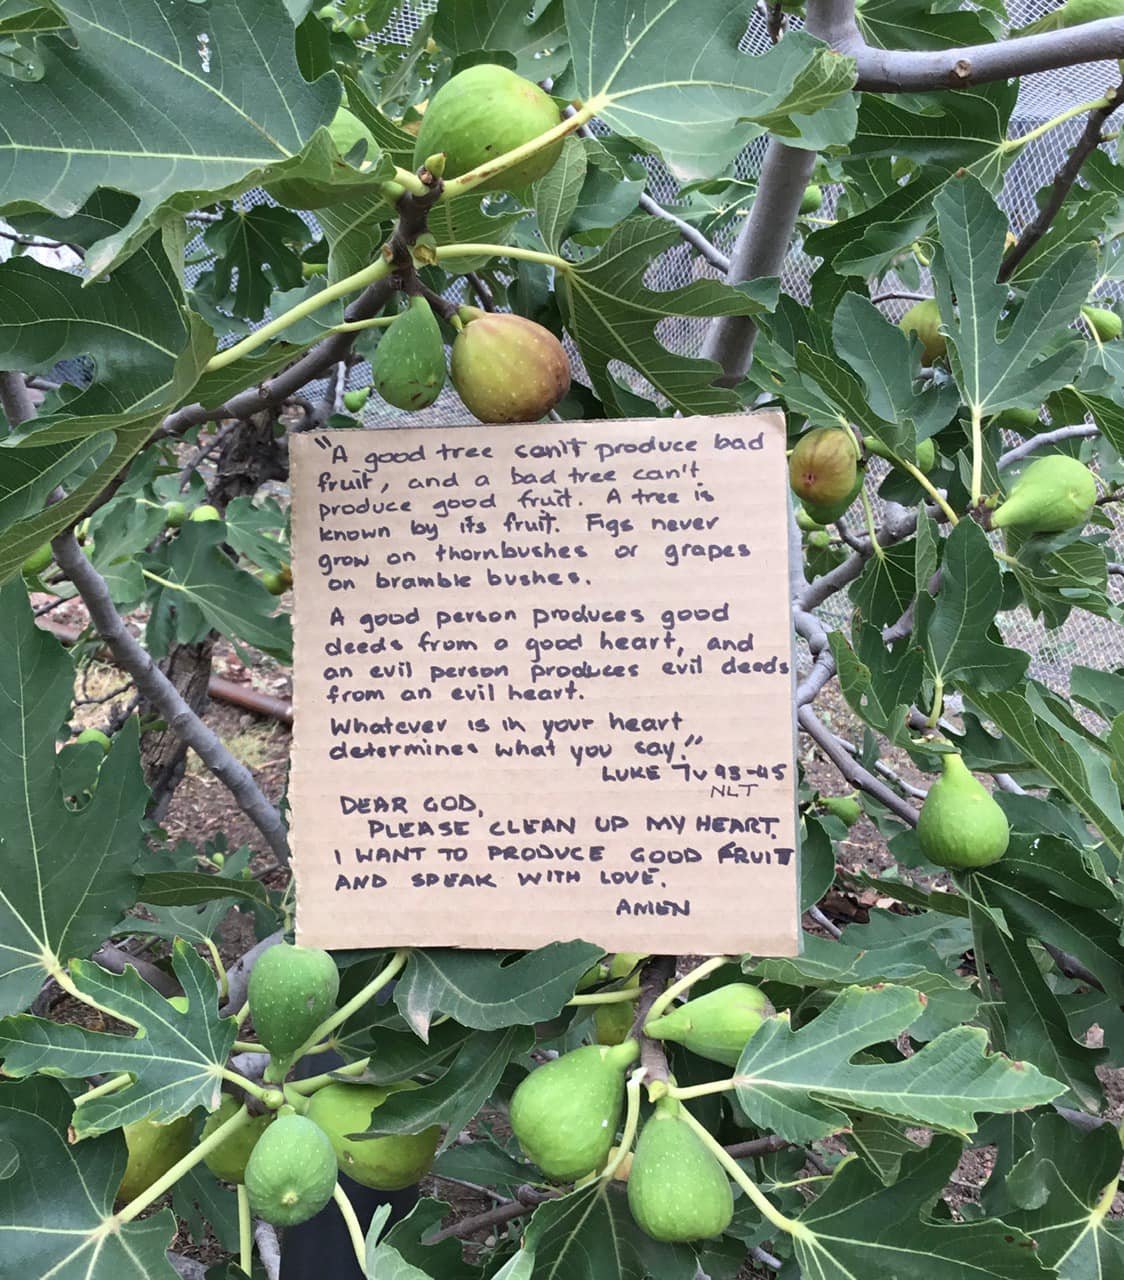 "A good tree can't produce bad
fruit, and a bad tree can't
produce good fruit. A tree is
known by its fruit. Figs never
grow on thornbushes or grapes
on bramble bushes.
A good person produces good
deeds from a good heart, and
an evil person produces evil deeds
from an evil heart.
Whatever is in your heart
determines what you say."
LUKE 7v 43-45
NLT
DEAR GOD,
PLEASE CLEAN UP MY HEART.
I WANT TO PRODUCE GOOD FRUIT
AND SPEAK WITH LOVE.
AMEN